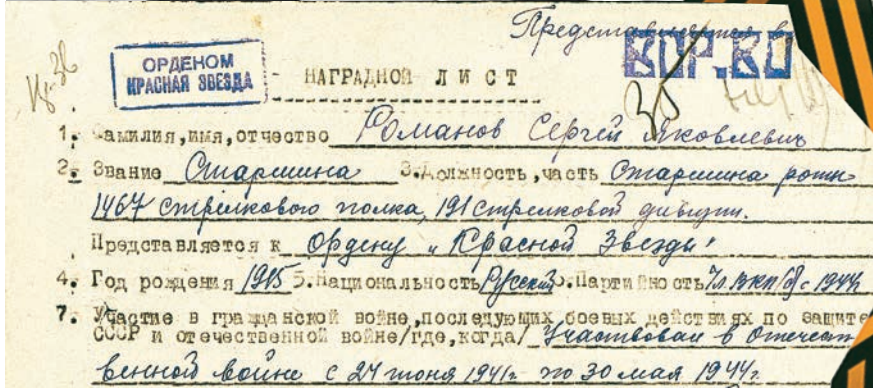 Представляется к
ОРДЕНОМ
КРАСНАЯ ЗВЕЗДА
НАГРАДНОЙ ЛИСТ
1. Фамилия, имя, отчество Романов Сергей Яковлевич
2. Звание Старшина 3. Должность, часть Старшина роты
1467 стрелкового полка, 191 стрелковой дивизии.
Представляется к Ордену „Красной Звезды"
4. Год рождения 1915 5. Национальность Русский 6. Партийность Чл. ВКП/б/ с 1944
7. Участие в гражданской войне, последующих боевых действиях по защите
СССР и отечественной войне/где, когда/ Участвовал в Отечест
венной войне с 24 июня 1941г. по 30 мая 1944г.